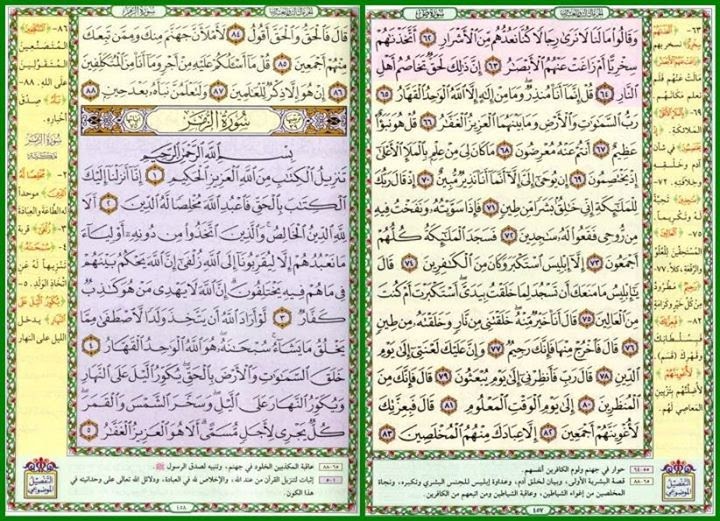 سورة ص
وقالوا ما لنا لا نرى رجالا كنا نعدهم من الأشرار ٦٢ أتخذنهم
سخريا أم زاغت عنهم الأبصر ٦٣ إن ذلك لحق تخاصم أهل
النار ٦٤ قل إنما أنا منذر وما من إله إلا الله الوحد القهار ٦٥
رب السموت والأرض وما بينهما العزيز الغفر ٦٦ قل هو نبؤا
عظيم ٦٧ أنتم عنه معرضون ٦٨ ما كان لي من علم بالملإ الأعلى
إذ يختصمون ٦٩ إن يوحى إلي إلا أنما أنا نذير مبين ٧٠ إذ قال ربك
للملئكة إني خلق بشرا من طين ٧١ فإذا سويته ونفخت فيه
من روحي فقعوا له سجدين ٧٢ فسجد الملئكة كلهم
أجمعون ٧٣ إلا إبليس استكبر وكان من الكفرين ٧٤ قال
يإبليس ما منعك أن تسجد لما خلقت بيدي أستكبرت أم كنت
من العالين ٧٥ قال أنا خير منه خلقتني من نار وخلقته من طين
٧٦ قال فاخرج منها فإنك رجيم ٧٧ وإن عليك لعنتي إلى يوم
الدين ٧٨ قال رب فأنظرني إلى يوم يبعثون ٧٩ قال فإنك من
المنظرين ٨٠ إلى يوم الوقت المعلوم ٨١ قال فبعزتك
لأغوينهم أجمعين ٨٢ إلا عبادك منهم المخلصين ٨٣
٥٥-٦٤ حوار في جهنم ولوم الكافرين أنفسهم.
٦٥-٨٨ قصة البشرية الأولى، وبيان لخلق آدم، وعداوة إبليس للجنس البشري وتكبره، ونجاة
المخلصين من إغواء الشياطين، وعاقبة الشياطين ومن اتبعهم من الكافرين.
التفصيل
الموضوعي
٤٥٧
سورة الزمر
قال فالحق والحق أقول ٨٤ لأملأن جهنم منك وممن تبعك
منهم أجمعين ٨٥ قل ما أسئلكم عليه من أجر وما أنا من المتكلفين
٨٦ إن هو إلا ذكر للعلمين ٨٧ ولتعلمن نبأه بعد حين ٨٨
سورة الزمر
بسم الله الرحمن الرحيم
تنزيل الكتب من الله العزيز الحكيم ١ إنا أنزلنا إليك
الكتب بالحق فاعبد الله مخلصا له الدين ٢ ألا
لله الدين الخالص والذين اتخذوا من دونه أولياء
ما نعبدهم إلا ليقربونا إلى الله زلفى إن الله يحكم بينهم
في ما هم فيه يختلفون إن الله لا يهدي من هو كذب
كفار ٣ لو أراد الله أن يتخذ ولدا لاصطفى مما
يخلق ما يشاء سبحنه هو الله الوحد القهار ٤
خلق السموت والأرض بالحق يكور اليل على النهار
ويكور النهار على اليل وسخر الشمس والقمر
كل يجري لأجل مسمى ألا هو العزيز الغفر ٥
٦٥-٨٨ عاقبة المكذبين الخلود في جهنم، وتنبيه لصدق الرسول ﷺ.
١-٥ إثبات لتنزيل القرآن من عند الله، والإخلاص لله في العبادة، ودلائل الله تعالى على وحدانيته في
هذا الكون.
التفصيل
الموضوعي
٤٥٨